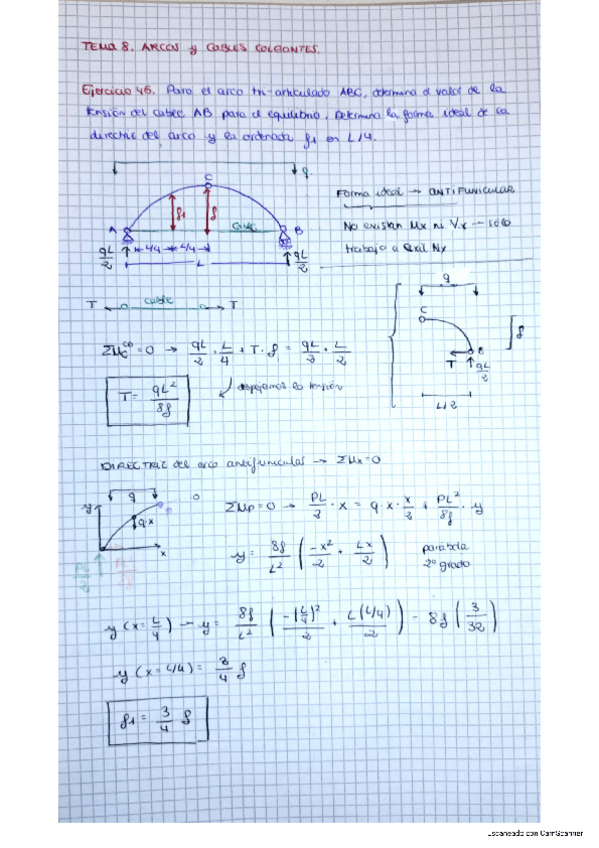 TEMA 8. ARCOS y CABLES COLGANTES.
Ejercicio 45. Para el arco tri-articulado ABC, determina el valor de la
tensión del cable AB para el equilibrio. Determina la forma ideal de la
directriz del arco y la ordenada f1 en L/4.
q
C
A f1 f cable B
L/4 L/4
qL/2 L qL/2
Forma ideal → ANTIFUNICULAR
No existan Mx ni Vx — solo
trabaja a axil Nx
T ← cable → T
ΣMc^CB = 0 → qL/2 · L/4 + T · f = qL/2 · L/2
T = qL²/8f
despejamos la tensión
q
C
f
T B
qL/2
L/2
DIRECTRIZ del arco antifunicular → ΣMx=0
q
y
q·x
x
ΣMp=0 → PL/2 · x = q · x · x/2 + PL²/8f · y
y = 8f/L² (-x²/2 + Lx/2) parábola
2º grado
y (x = L/4) — y = 8f/L² (-(L/4)²/2 + L(L/4)/2) - 8f (3/32)
y (x = L/4) = 3/4 f
f1 = 3/4 f
Escaneado con CamScanner